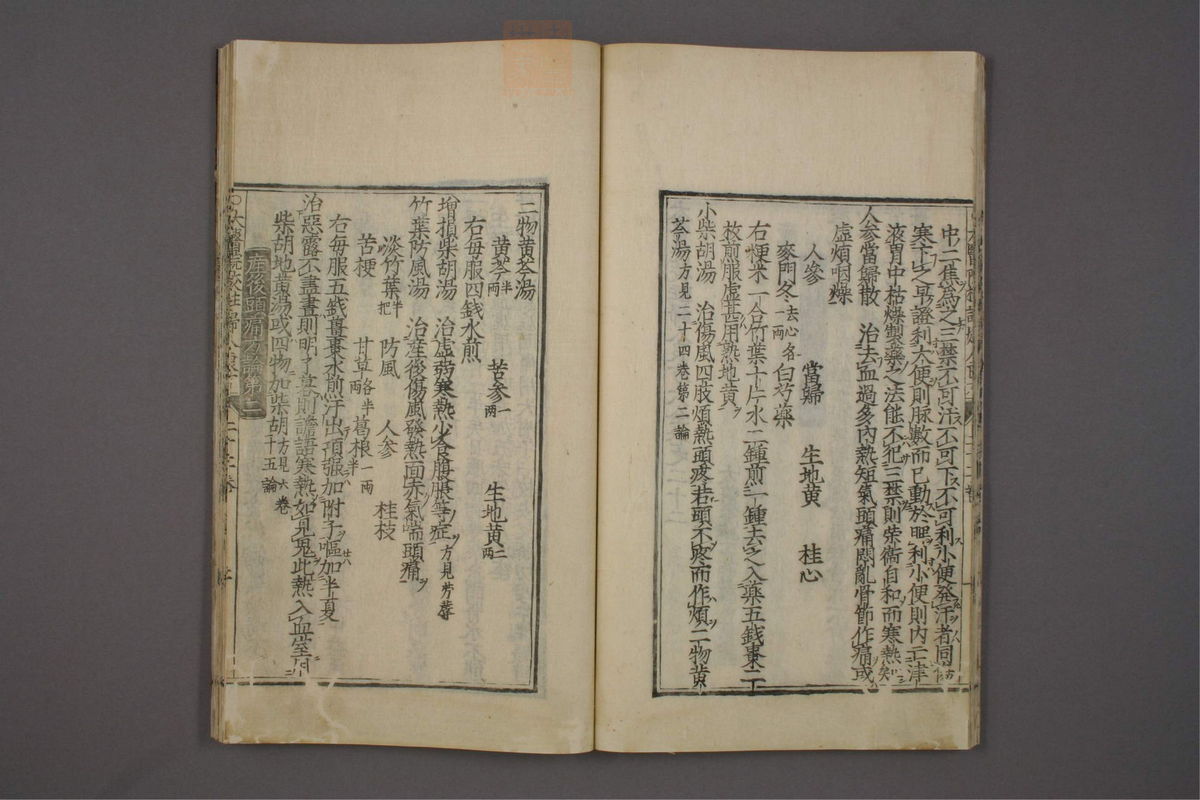 中二焦爲之三禁不可汗不可下不可利小便發汗者同
寒下之早證利大便則脉數而已動於脾利小便則内亡津
液胃中枯燥製藥之法能不犯三禁則榮衛自和而寒熱
人参當歸散　治去血過多内熱短氣頭痛悶亂骨節作痛或
虚煩咽燥
人參　當歸　生地黄　桂心
麥門冬去心各一兩　白芍藥
右粳米一合竹葉十片水二鍾煎一鍾去之入藥五錢棗二
枚煎服虚甚用熟地黄
小柴胡湯　治傷風四肢煩熱頭疼若頭不疼而作煩二物黄
芩湯方見二十四巻第二論
三物黄芩湯
黄芩半兩　苦参一兩　生地黄二兩
右毎服四錢水煎
増損柴胡湯　治虚弱寒熱少食腹脹等症方見
竹葉防風湯　治産後傷風發熱面赤氣喘頭痛
淡竹葉半把　防風　人参　桂枝
苦梗　甘草各半兩　葛根一兩半
右毎服五錢薑棗水煎汗出項強加附子嘔加半夏
治惡露不盡晝則明了暮則譫語寒熱如見鬼此熱入血室
柴胡地黄湯或四物加柴胡方見六巻十五論
産後頭痛方論第二